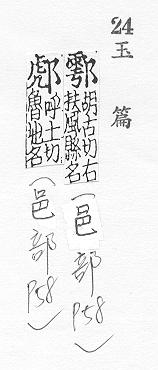 24 玉篇
鄠 胡古切右扶風縣名 (邑部 P58)
呼土切魯地名 (邑部 P58)